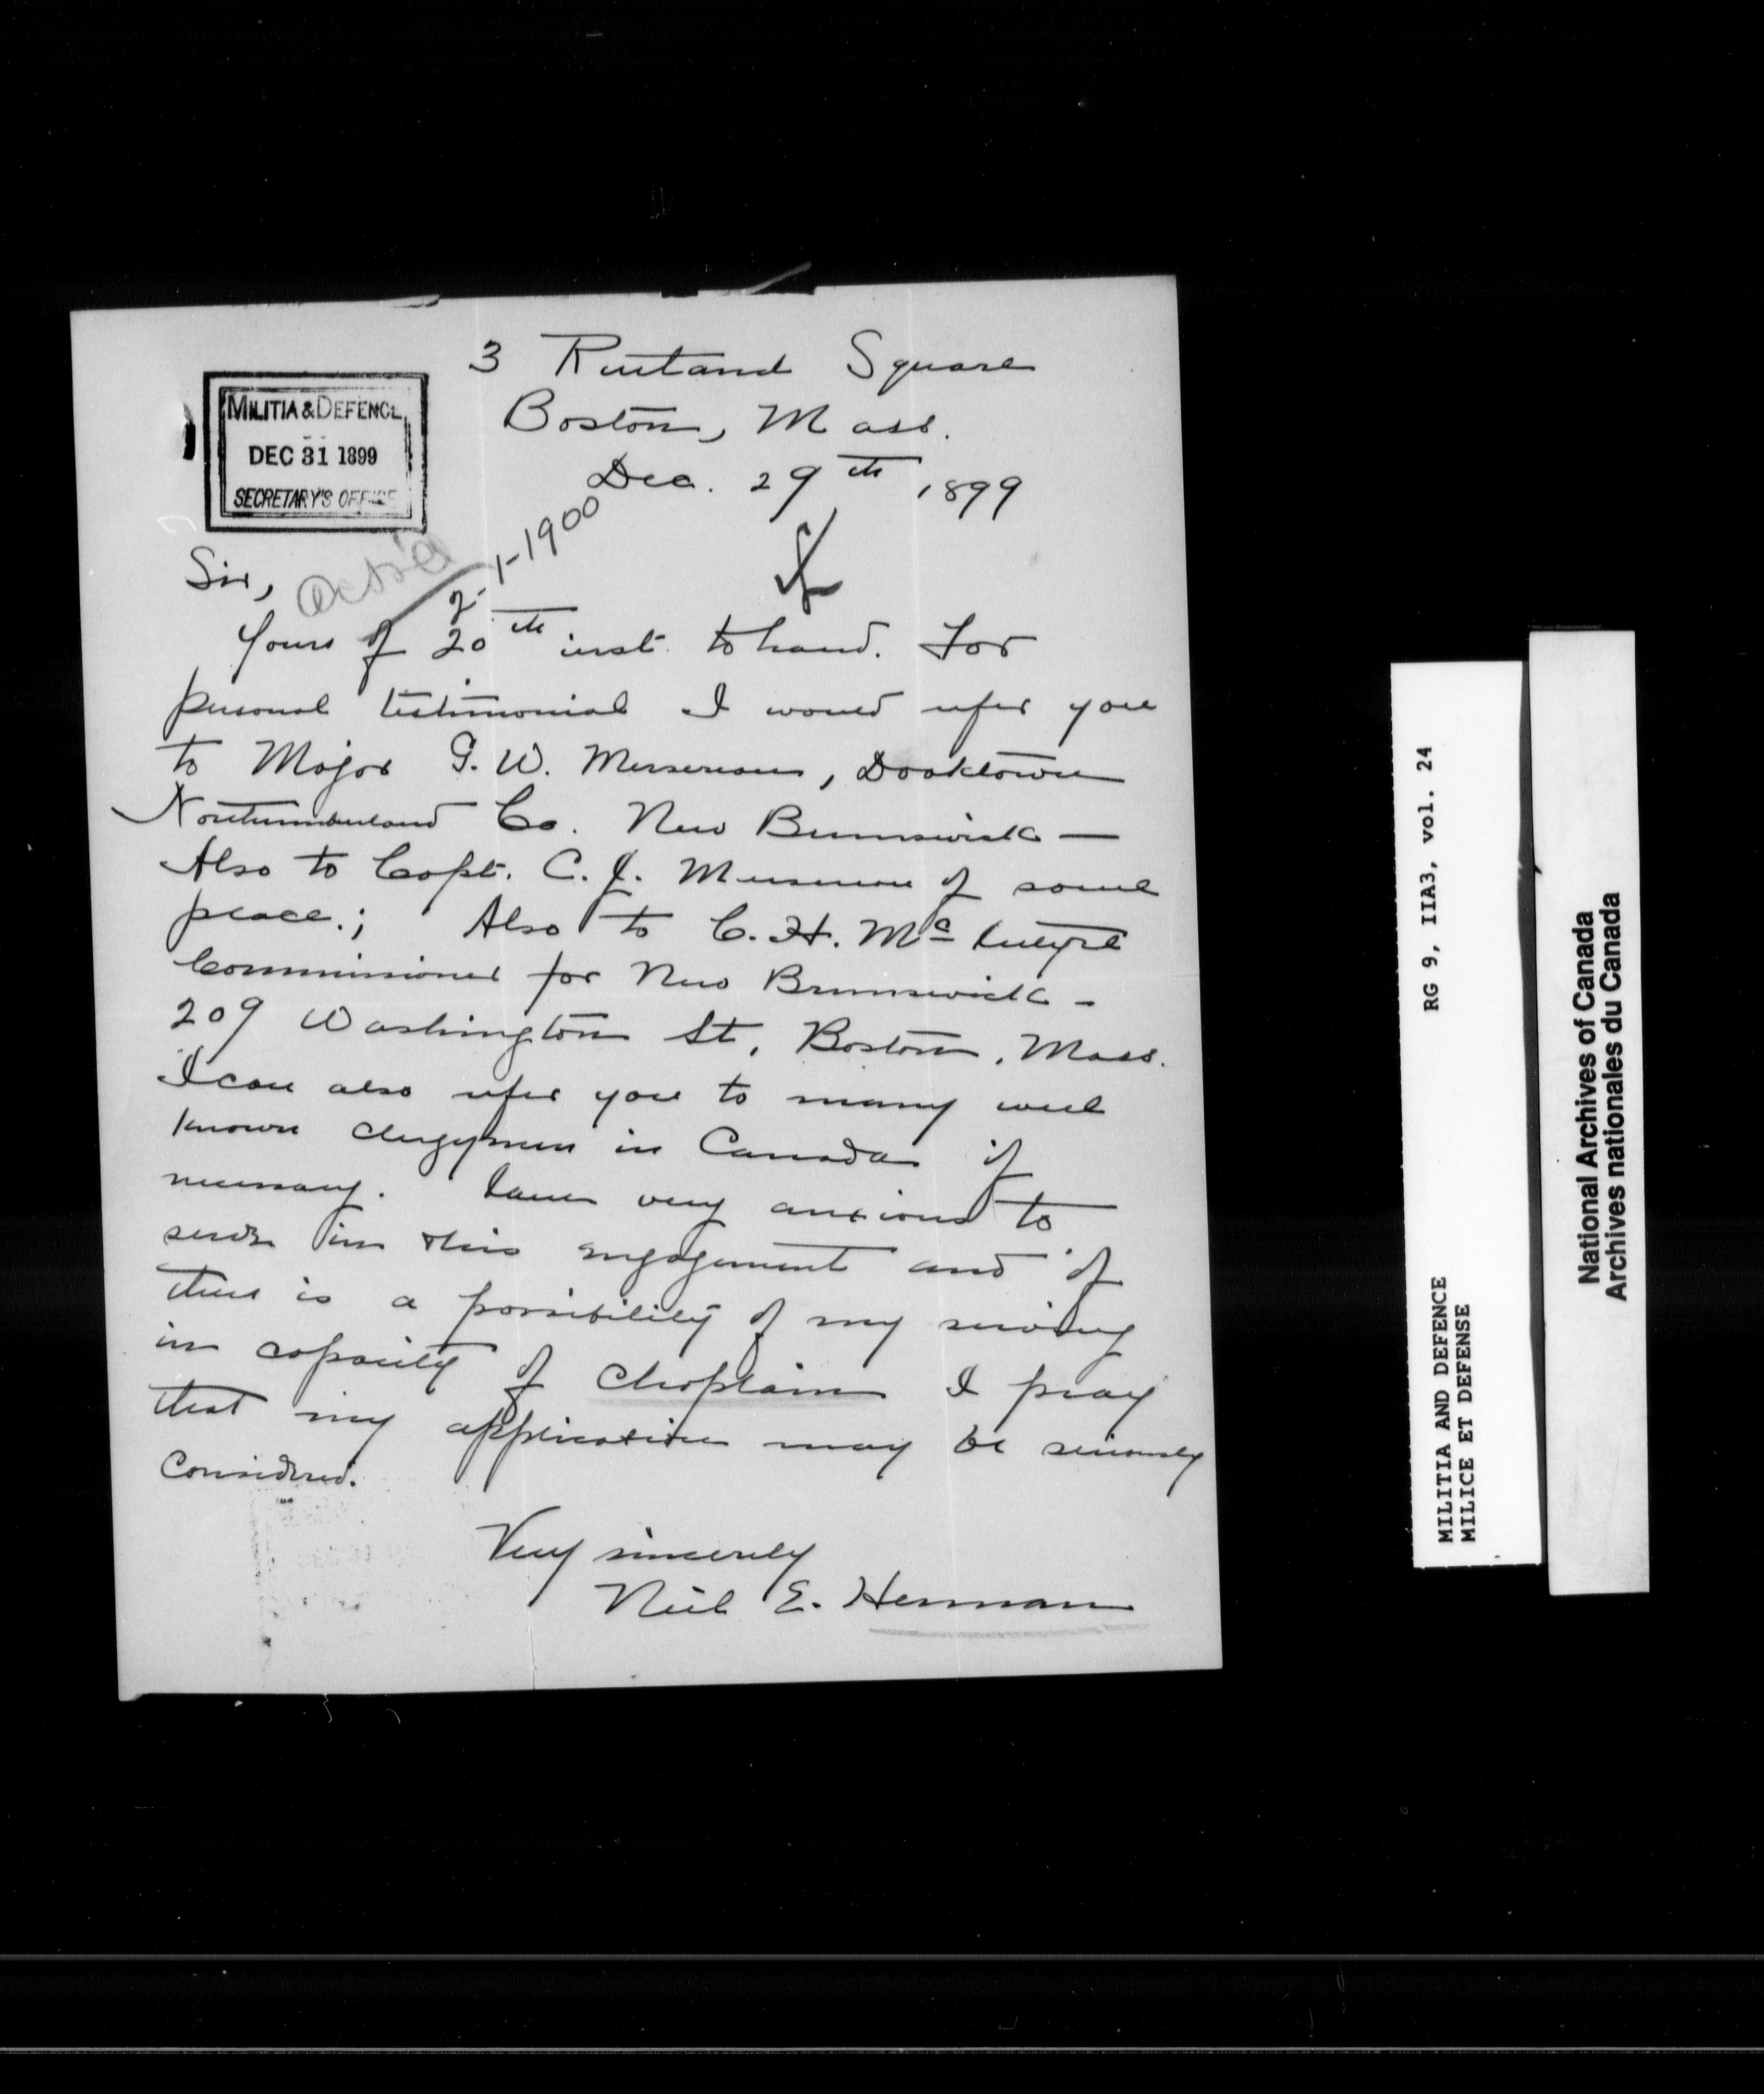 3 Rutland Square
Boston, Mass.
Dec. 29th, 1899
MILITIA & DEFENCE
DEC 31 1899
SECRETARY'S OFFICE
Ack'd
2-1-1900
Sir,
Yours of 20th inst. to hand. For
personal testimonial I would refer you
to Major G. W. Mersereau, Doaktown
Northumberland Co. New Brunswick —
Also to Capt. C. J. Mersereau of same
place.; Also to C. H. McIntyre
Commissioner for New Brunswick -
209 Washington St, Boston, Mass.
I can also refer you to many well
known clergymen in Canada if
necessary. I am very anxious to
serve in this engagement and if
there is a possibility of my serving
in capacity of Chaplain I pray
that my application may be seriously
Considered.
Very sincerely
Neil E. Herman
RG 9, IIA3, vol. 24
MILITIA AND DEFENCE
MILICE ET DEFENSE
National Archives of Canada
Archives nationales du Canada